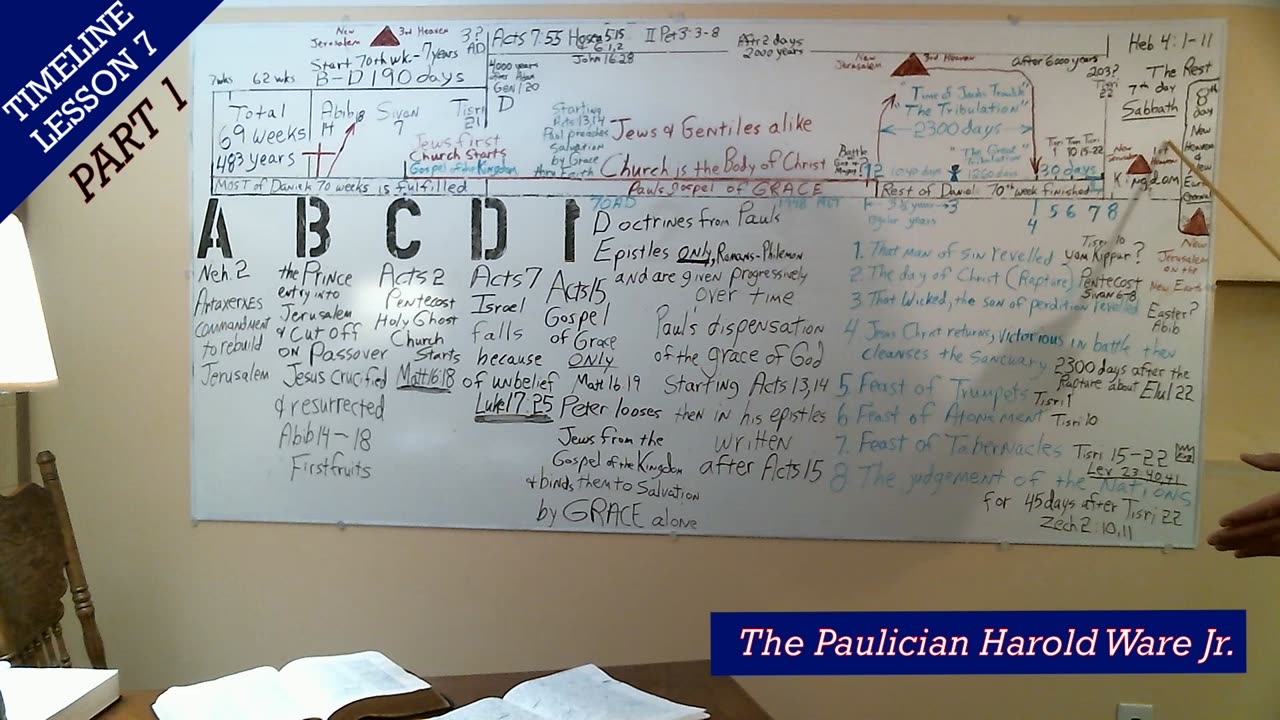 TIMELINE
LESSON 7
PART 1
New
Jerusalem
3rd Heaven
3?
AD
Start 70th wk - 7 years
7wks 62 wks B-D 190 days
Total
69 weeks
483 years
Abib
14
18
Sivan
7
Tisri
21
Jews first
Church Starts
Gospel of the Kingdom
MOST OF Daniels 70 weeks is fulfilled
Acts 7:55 Hosea 5:15
6:1,2
John 16:28
II Pet 3:3-8
After 2 days
2000 years
4000 years
after Adam
Gen 1:20
D
Starting
Acts 13,14
Paul preaches
Salvation
by Grace
thru Faith
Jews & Gentiles alike
Church is the Body of Christ
Pauls Gospel of GRACE
70AD
1948 1967
New
Jerusalem
3rd Heaven
after 6000 years
203?
Tisri
22
"Time of Jacobs Trouble"
"The Tribulation"
2300 days
"The Great
Tribulation"
Battle
1 2
1040 days
1260 days
30 days
Rest of Daniels 70th week finished
3 1/2 years
regular years
3
4
5 6 7 8
Tisri Tisri Tisri
1 10 15-22
Heb 4:1-11
The Rest
7th day
Sabbath
Kingdom
8th
day
New
Heaven
&
New
Earth
New
Jerusalem
on the
New Earth
A B C D I
Neh. 2
Artaxerxes
commandment
to rebuild
Jerusalem
the Prince
entry into
Jerusalem
& Cut off
on Passover
Jesus Crucified
& resurrected
Abib 14-18
Firstfruits
Acts 2
Pentecost
Holy Ghost
Church
Starts
Matt 16:18
Acts 7
Israel
falls
because
of unbelief
Luke 17:25
Acts 15
Gospel
of Grace
ONLY
Matt 16 19
Peter looses
Jews from the
Gospel of the Kingdom
& binds them to Salvation
by GRACE alone
Doctrines from Pauls
Epistles only, Romans-Philemon
and are given progressively
over time
Paul's dispensation
of the grace of God
Starting Acts 13,14
then in his epistles
written
after Acts 15
1. That man of sin revelled
Tisri 10
yom Kippur?
2. The day of Christ (Rapture)
Pentecost
Sivan 6-8
3 That Wicked, the son of perdition reveled
Easter?
Abib
4 Jesus Christ returns, victorious in battle then
cleanses the Sancuary
2300 days after the
Rapture about Elul 22
5 Feast of Trumpets Tisri 1
6 Feast of Atonement Tisri 10
7. Feast of Tabernacles Tisri 15-22
Lev 23:40,41
8 The judgement of the Nations
for 45 days after Tisri 22
Zech 2:10,11
The Paulician Harold Ware Jr.